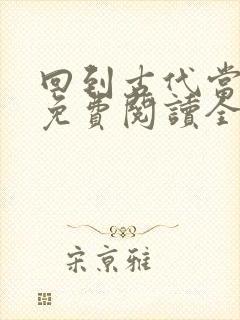 回到古代當
免費閱讀全
宋京雅